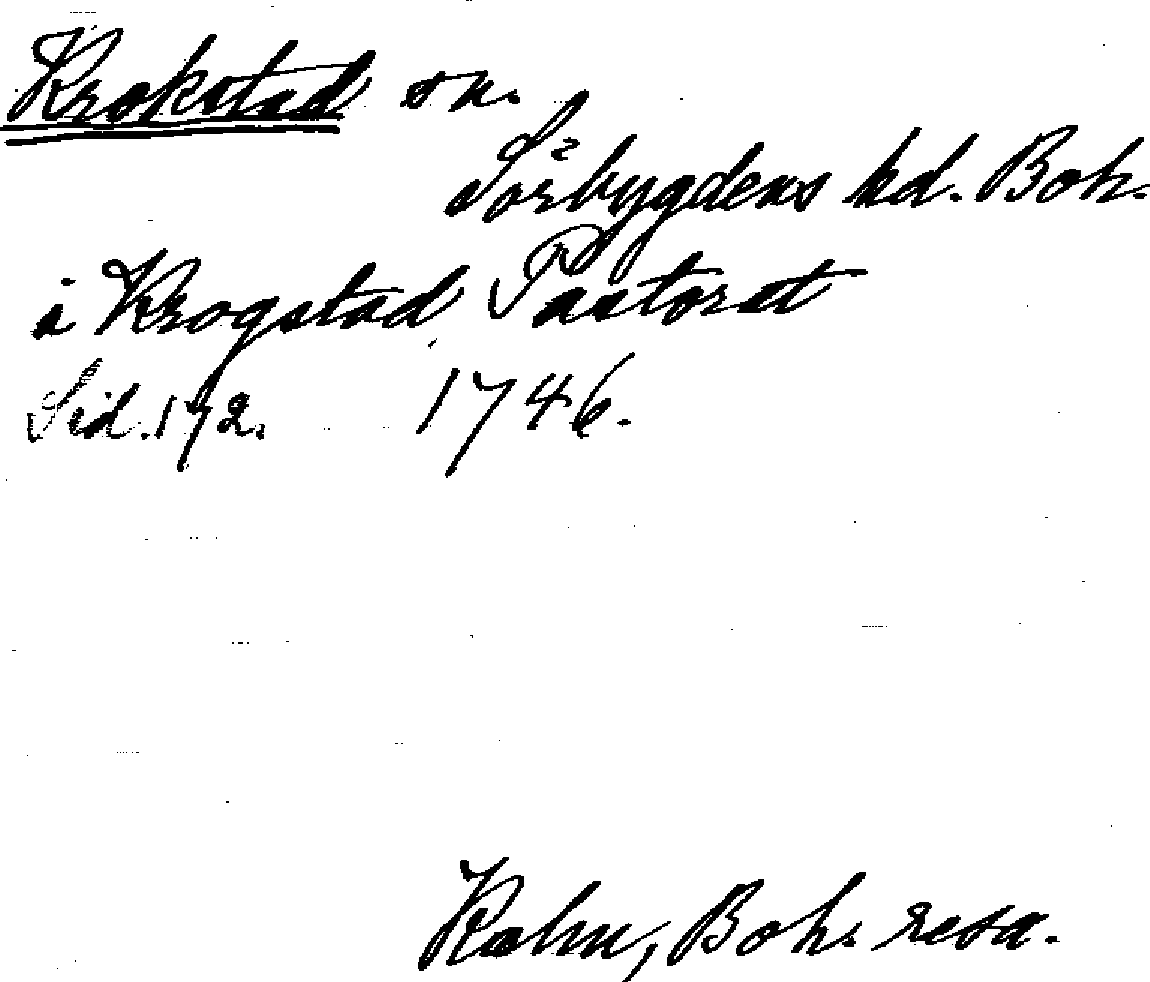 Krokstad sn.
Sörbygdens hd. Boh.
å Krogstad Pastorat
Sid. 172. 1746.
Kalm, Boh. resa.